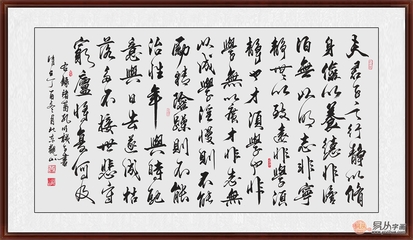 夫君子之行靜以修
身儉以養德非澹
泊無以明志非寧
靜無以致遠夫學須
靜也才須學也非
學無以廣才非志無
以成學淫慢則不能
勵精險躁則不能
治性年與時馳
意與日去遂成枯
落多不接世悲守
窮廬將復何及
右錄諸葛孔明誡子書
丁酉冬月
易从字画